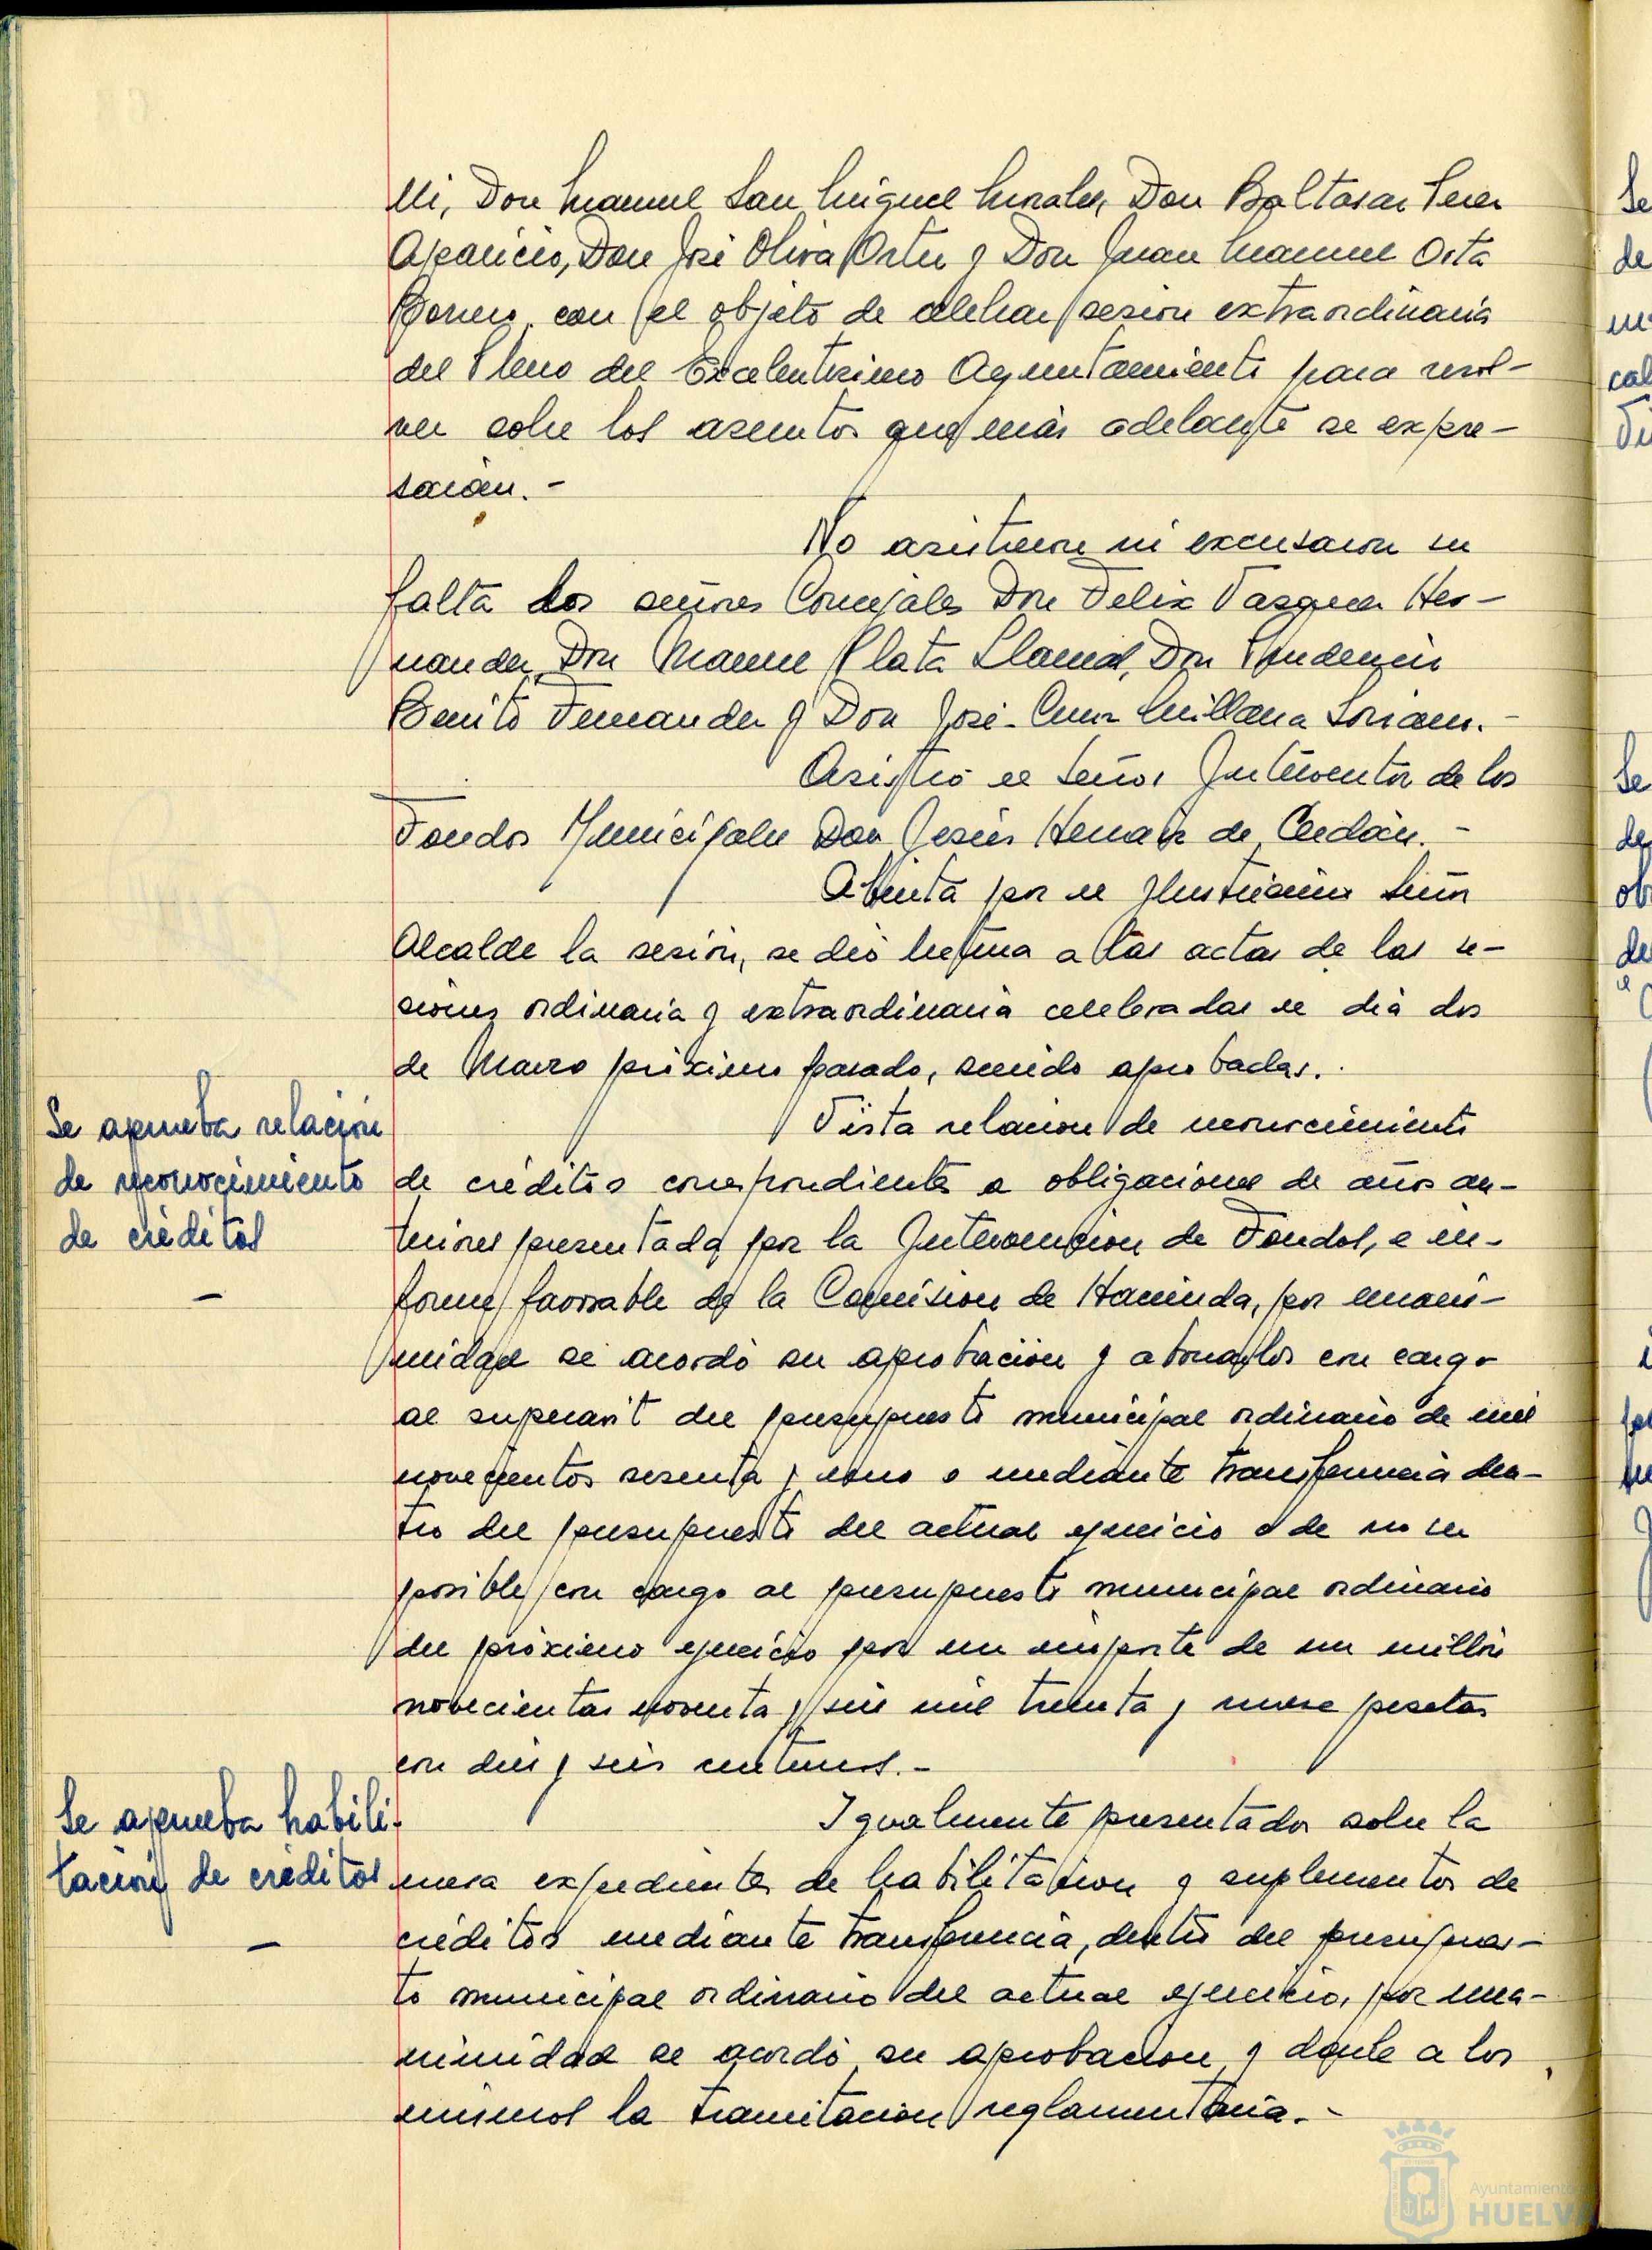 lli, Don Manuel San Miguel Morales, Don Baltasar Perez
Aparicio, Don José Oliva Ortiz y Don Juan Manuel Orta
Borrero, con el objeto de celebrar sesion extraordinaria
del Pleno del Excelentisimo Ayuntamiento para resol-
ver sobre los asuntos que más adelante se expre-
sarán.-
No asistieron ni excusaron su
falta los señores Concejales Don Felix Vazquez Her-
nandez, Don Manuel Plata Llamas, Don Prudencio
Benito Fernandez y Don José-Cruz Millana Soriano.-
Asistió el Señor Interventor de los
Fondos Municipales Don Jesús Hernaiz de Cerdán.-
Abierta por el Ilustrísimo Señor
Alcalde la sesión, se dió lectura a las actas de las se-
siones ordinaria y extraordinaria celebradas el dia dos
de Marzo próximo pasado, siendo aprobadas.
Se aprueba relación
de reconocimiento
de créditos
Vista relacion de reconocimiento
de créditos correspondientes a obligaciones de años an-
teriores presentada por la Intervencion de Fondos, e in-
forme favorable de la Comision de Hacienda, por unani-
midad se acordó su aprobación y abonarlos con cargo
al superavit del presupuesto municipal ordinario de mil
novecientos sesenta y uno o mediante transferencia den-
tro del presupuesto del actual ejercicio o de no ser
posible, con cargo al presupuesto municipal ordinario
del próximo ejercicio por un importe de un millón
novecientas noventa y seis mil treinta y nueve pesetas
con diez y seis centimos.-
Se aprueba habili-
tación de créditos
Igualmente presentados sobre la
mesa expedientes de habilitacion y suplementos de
créditos mediante transferencia, dentro del presupues-
to municipal ordinario del actual ejercicio, por una-
nimidad se acordó su aprobacion y darle a los
mismos la tramitacion reglamentaria.-
Ayuntamiento de
HUELVA